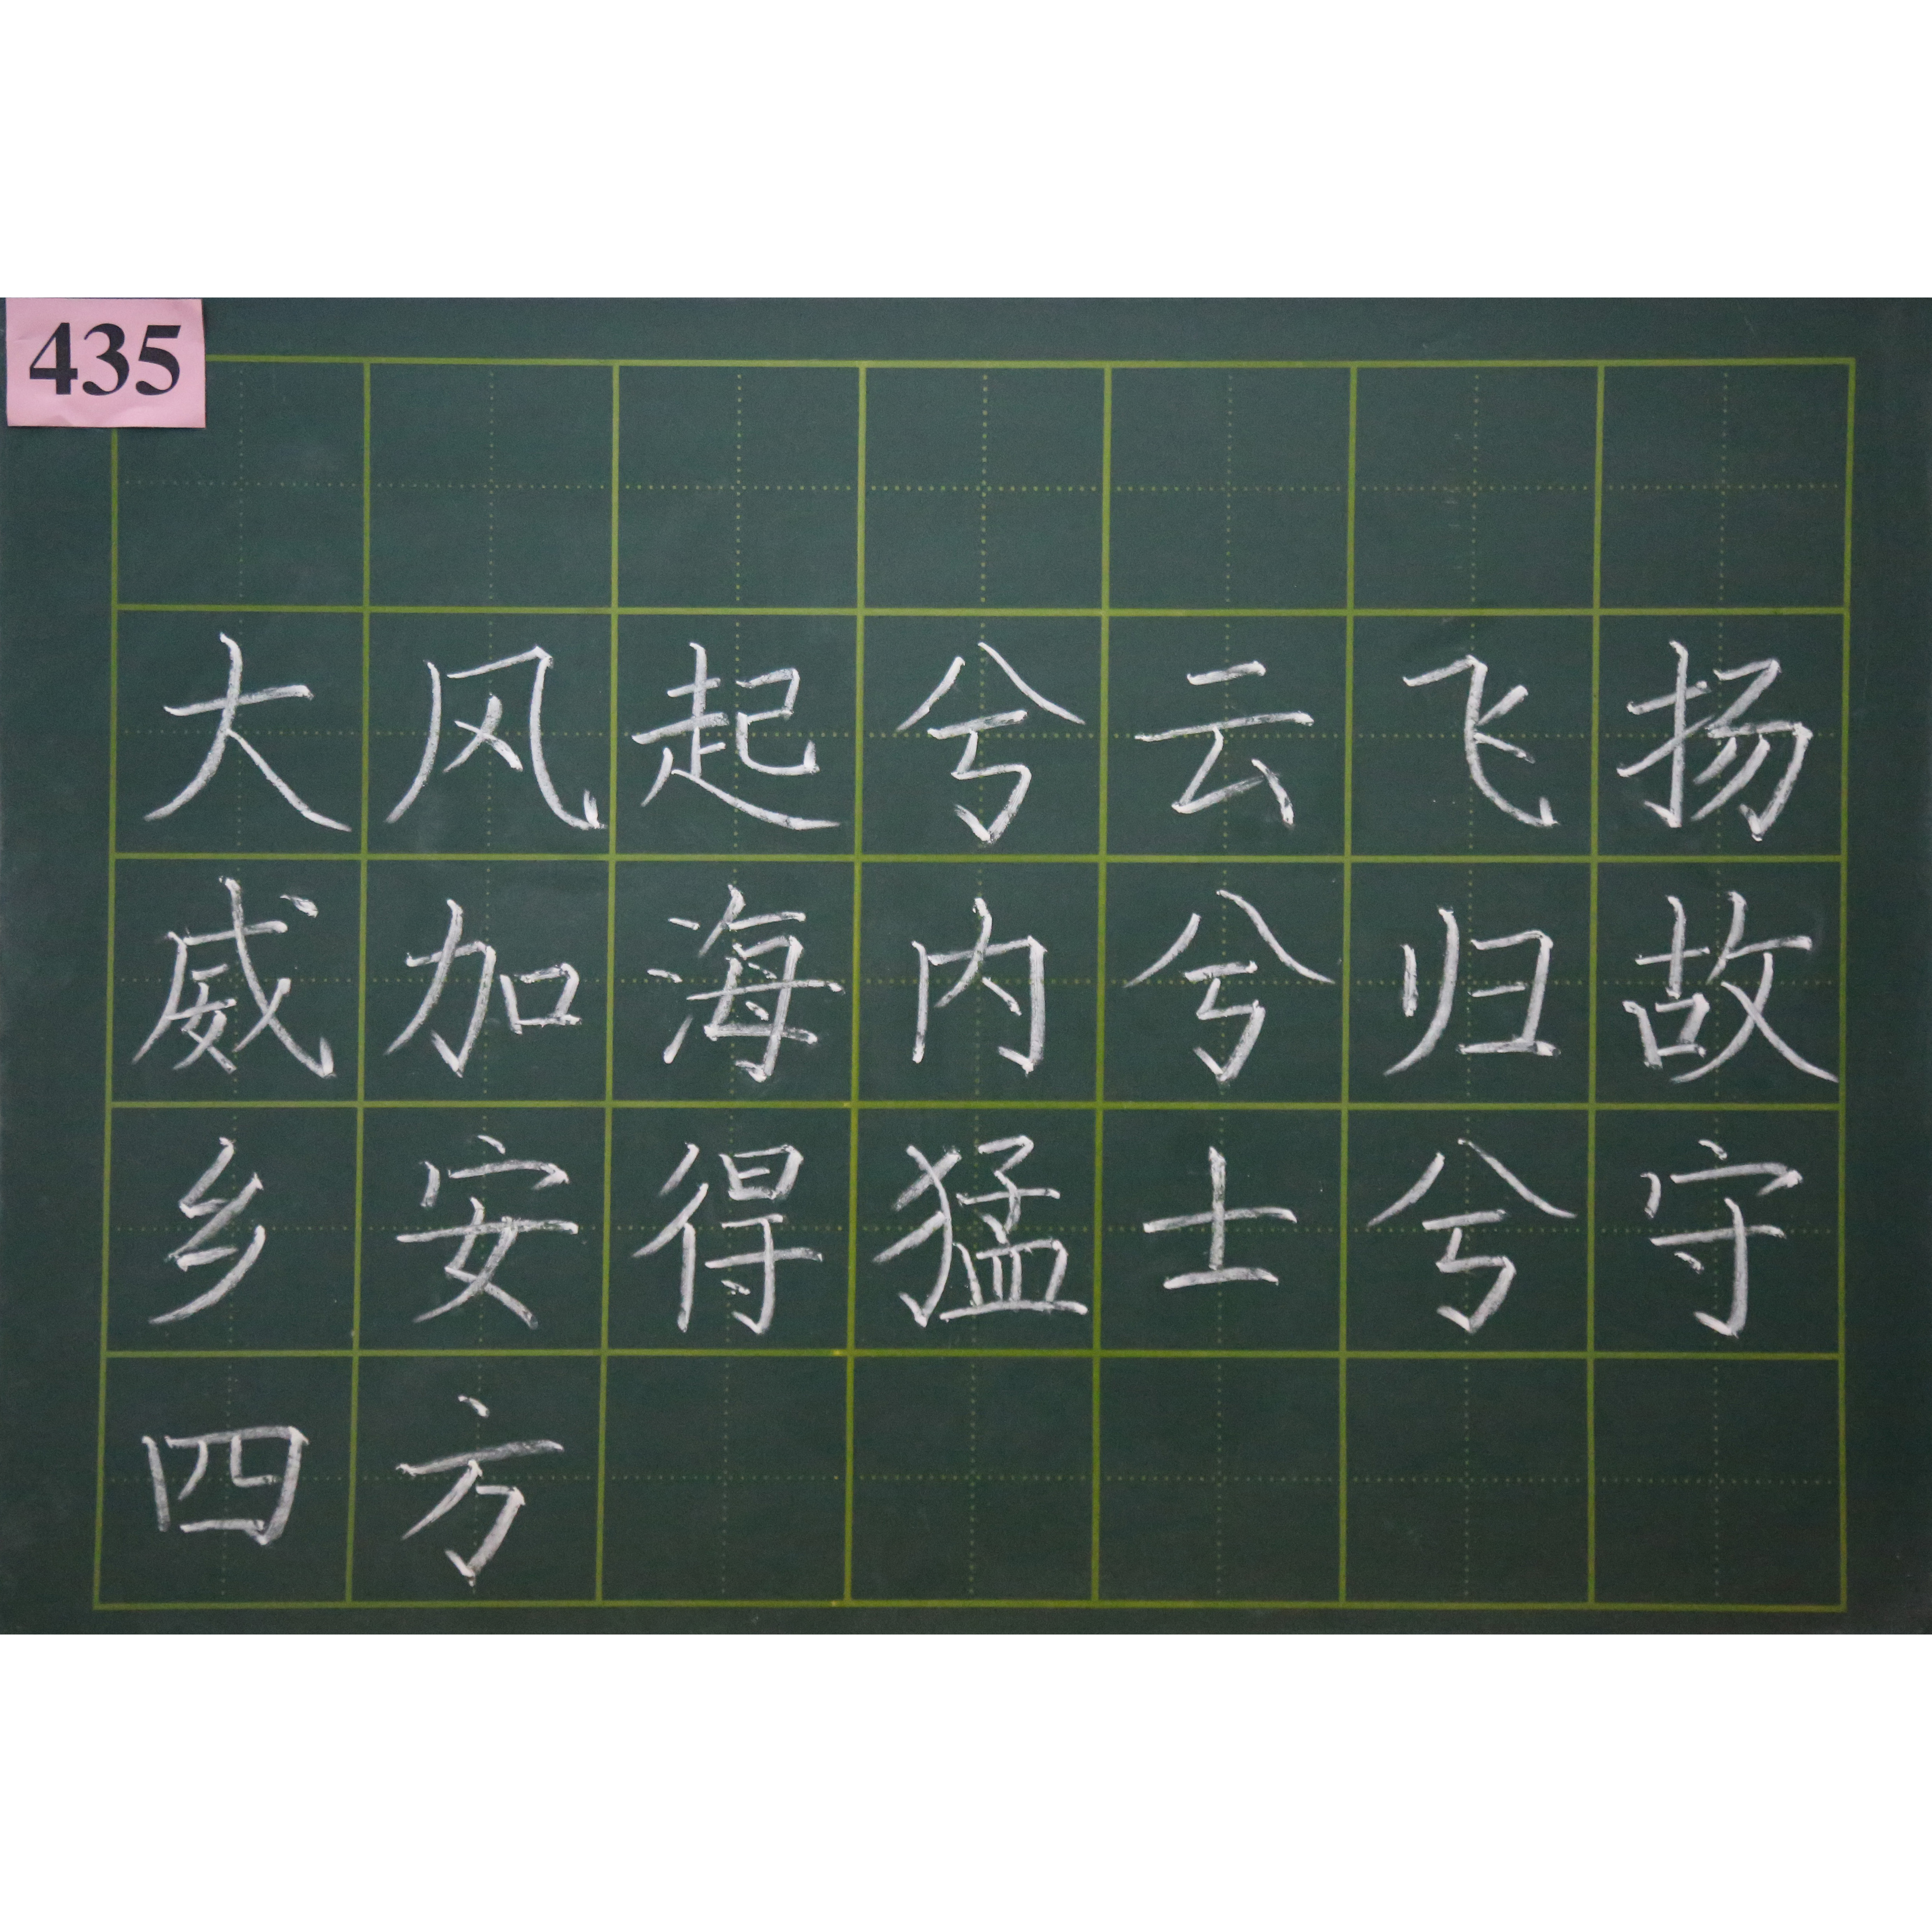 435
大风起兮云飞扬
威加海内兮归故
乡安得猛士兮守
四方